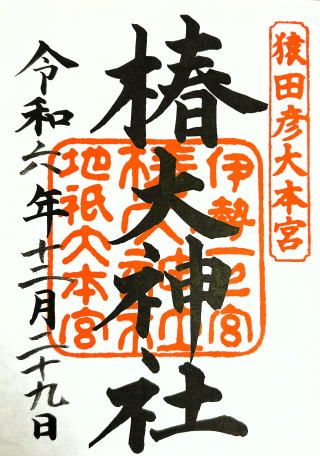 猿田彦大本宮
椿大神社
伊勢一之宮
椿大神社
地祇大本宮
令和六年十二月二十九日